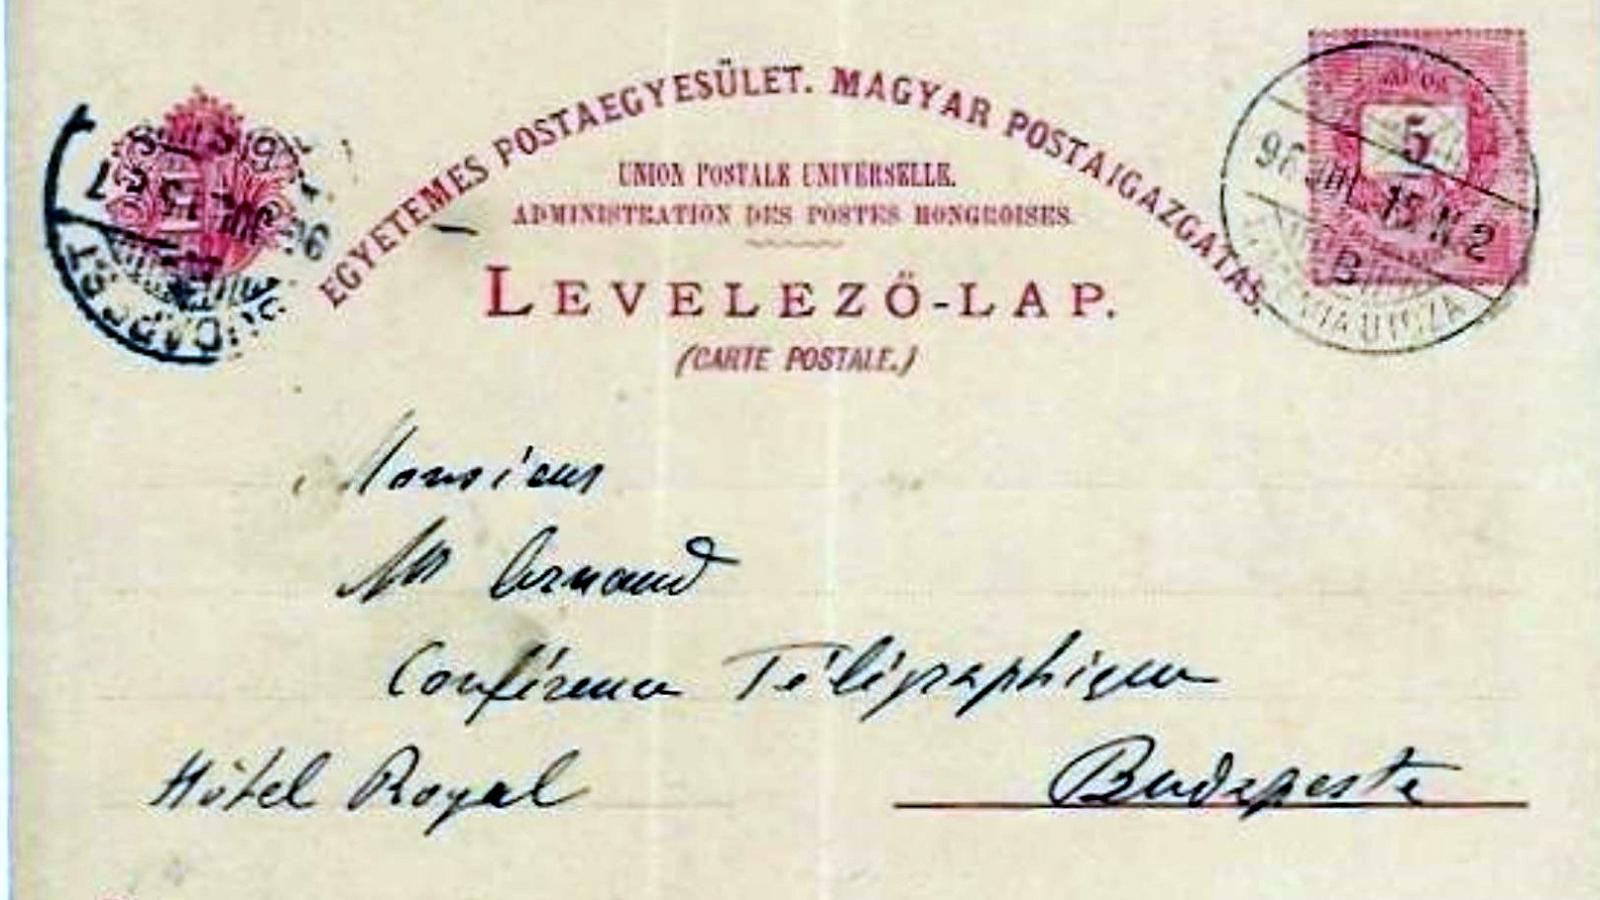 EGYETEMES POSTAEGYESÜLET. MAGYAR POSTAIGAZGATÁS.
UNION POSTALE UNIVERSELLE.
ADMINISTRATION DES POSTES HONGROISES.
LEVELEZŐ-LAP.
(CARTE POSTALE.)
5
96 JUL. 15. N. 2
B
UTCZA
BUDAPEST
96 JUL. 15
Monsieur
Mr Armand
Conférence Télégraphique
Hôtel Royal
Budapeste